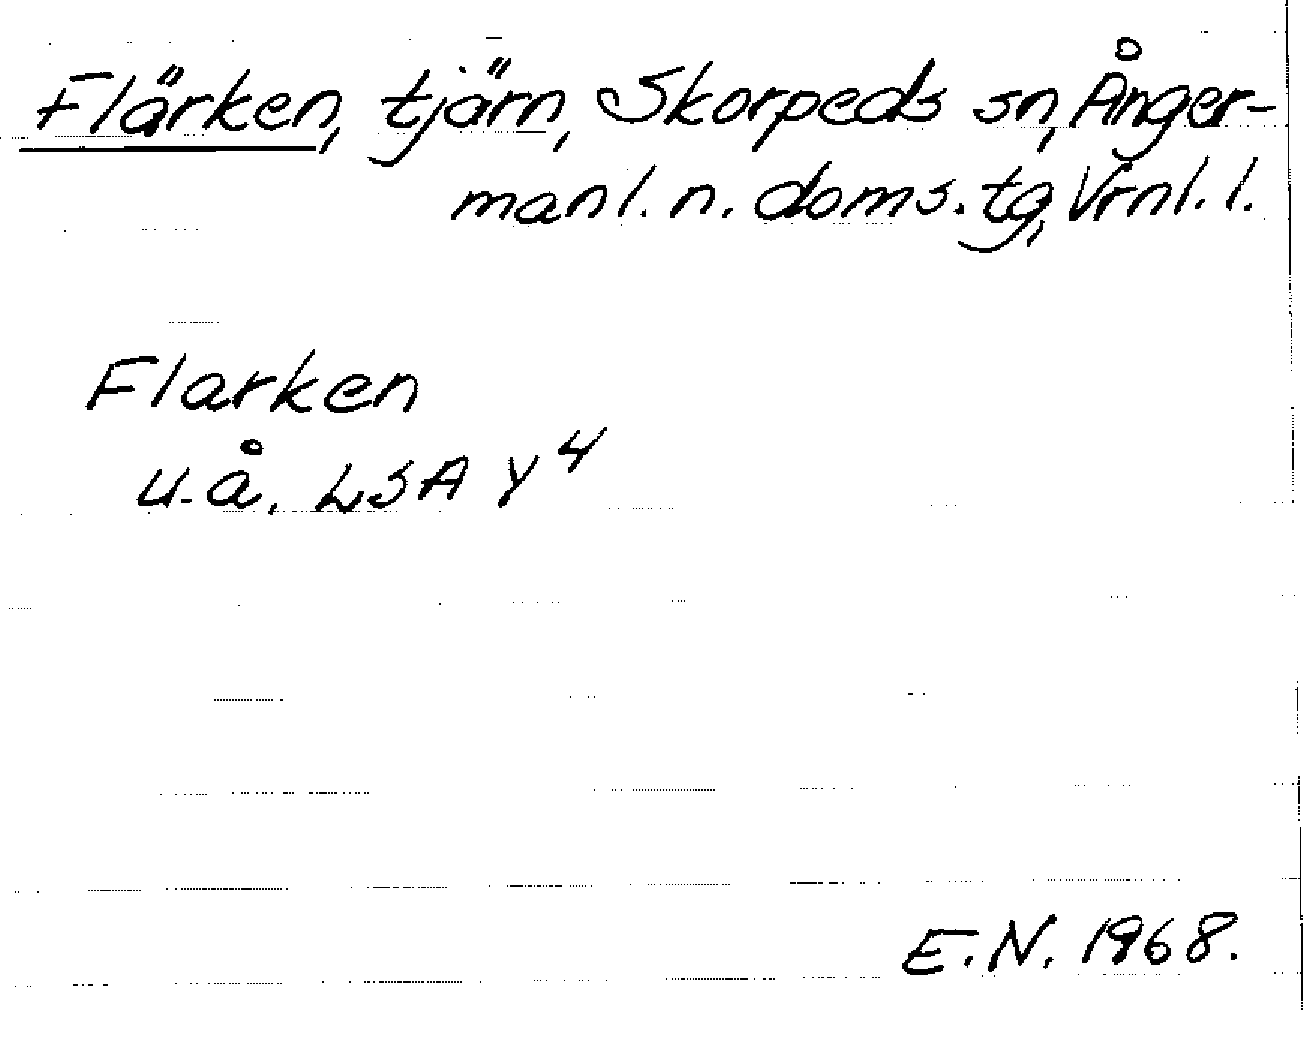 Flärken, tjärn, Skorpeds sn, Ånger-
manl. n. doms. tg, Vrnl. l.
Flarken
u. å. LSA Y 4
E.N. 1968.